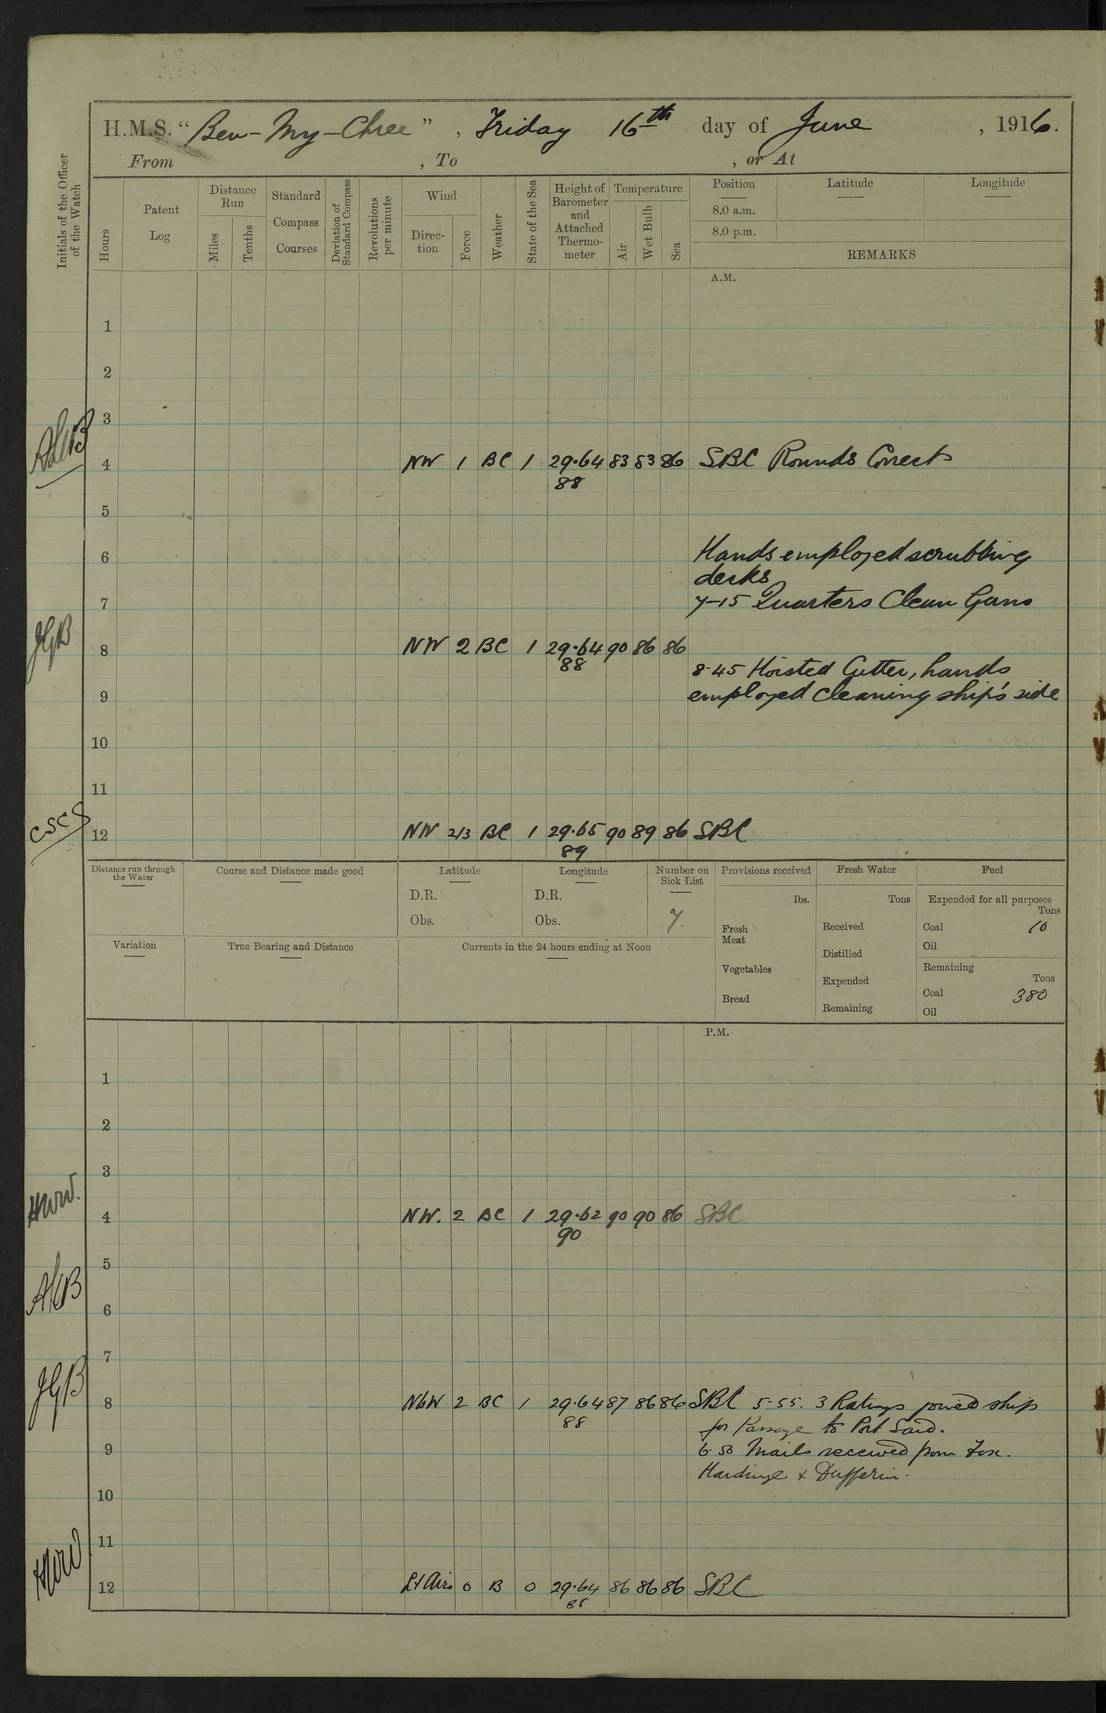 H.M.S. "Ben-My-Chree", Friday 16th day of June, 1916.
From , To , or At
Initials of the Officer of the Watch
Hours
Patent Log
Distance Run
Miles
Tenths
Standard Compass Courses
Deviation of Standard Compass
Revolutions per minute
Wind
Direction
Force
Weather
State of the Sea
Height of Barometer and Attached Thermometer
Temperature
Air
Wet Bulb
Sea
Position Latitude Longitude
8.0 a.m.
8.0 p.m.
REMARKS
A.M.
1
2
3
4 NW 1 BC 1 29.64 83 83 86 SBC Rounds Correct
88
5
6 Hands employed scrubbing
decks
7 7-15 Quarters Clean Guns
JGB
8 NW 2 BC 1 29.64 90 86 86
88
8.45 Hoisted Cutter, hands
9 employed cleaning ship's side
10
11
CSCS
12 NW 2/3 BC 1 29.65 90 89 86 SBC
89
Distance run through the Water
Course and Distance made good
Latitude
D.R.
Obs.
Longitude
D.R.
Obs.
Number on Sick List
7.
Provisions received
lbs.
Fresh Meat
Vegetables
Bread
Fresh Water
Tons
Received
Distilled
Expended
Remaining
Fuel
Expended for all purposes
Tons
Coal 10
Oil
Remaining
Tons
Coal 380
Oil
Variation
True Bearing and Distance
Currents in the 24 hours ending at Noon
P.M.
1
2
3
HWW.
4 NW. 2 BC 1 29.62 90 90 86 SBC
90
5
6
7
JGB
8 NbW 2 BC 1 29.64 87 86 86 SBC 5-55. 3 Ratings joined ship
88
for Passage to Port Said.
9 6.50 Mails received from Fox.
Hardinge & Dufferin.
10
11
HWW
12 Lt Airs 0 B 0 29.64 86 86 86 SBC